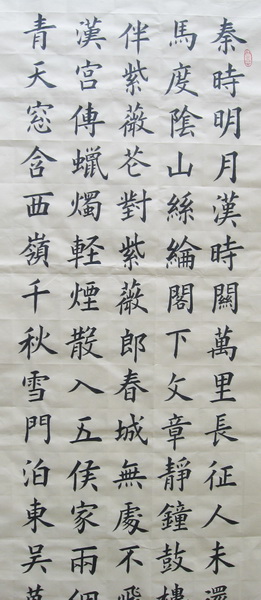 秦時明月漢時關萬里長征人未還
馬度陰山絲綸閣下文章靜鐘鼓樓
伴紫薇花對紫薇郎春城無處不飛
漢宮傳蠟燭軽煙散入五侯家兩個
青天窓含西嶺千秋雪門泊東吳萬